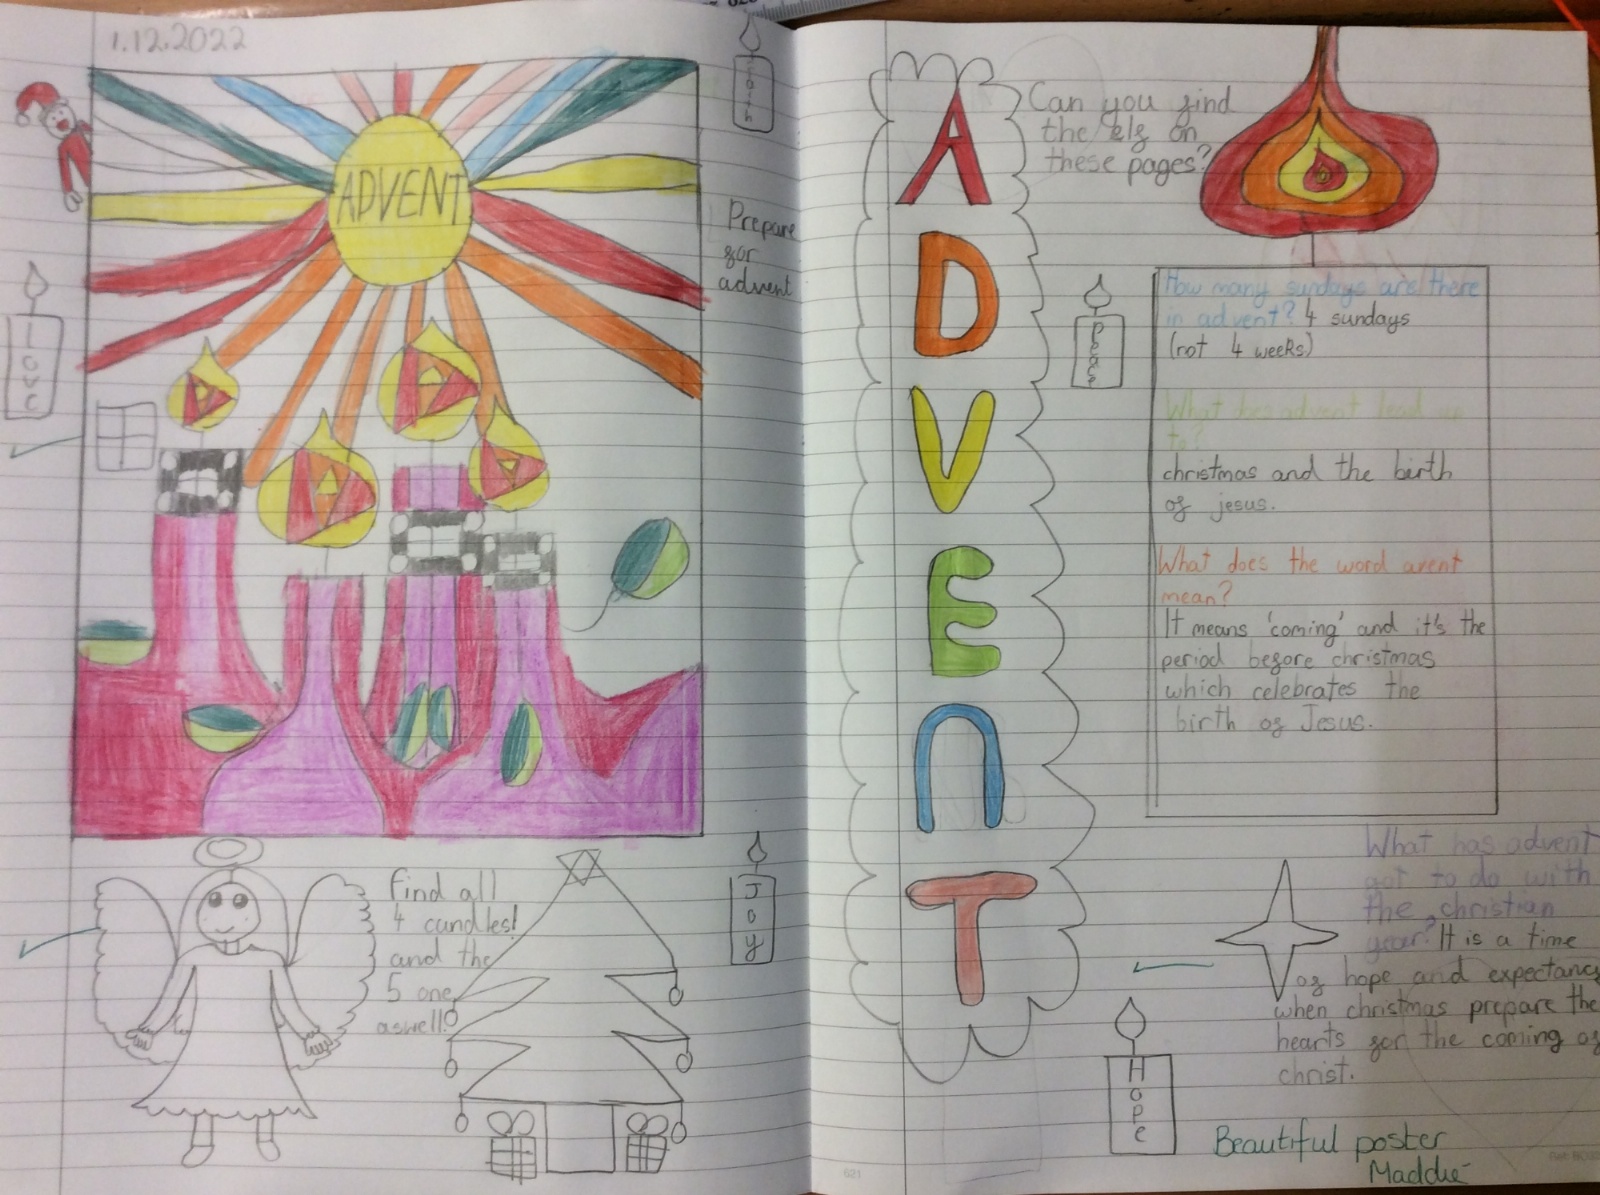 1.12.2022
ADVENT
Faith
Prepare
for
advent
Love
find all
4 candles!
and the
5 one
aswell!
Joy
ADVENT
Can you find
the elf on
these pages?
Peace
How many sundays are there
in advent? 4 sundays
(not 4 weeks)
What does advent lead up
to?
christmas and the birth
of jesus.
What does the word avent
mean?
It means 'coming' and it's the
period before christmas
which celebrates the
birth of Jesus.
What has advent
got to do with
the christian
year? It is a time
of hope and expectancy
when christmas prepare the
hearts for the coming of
christ.
Hope
Beautiful poster
Maddie
621